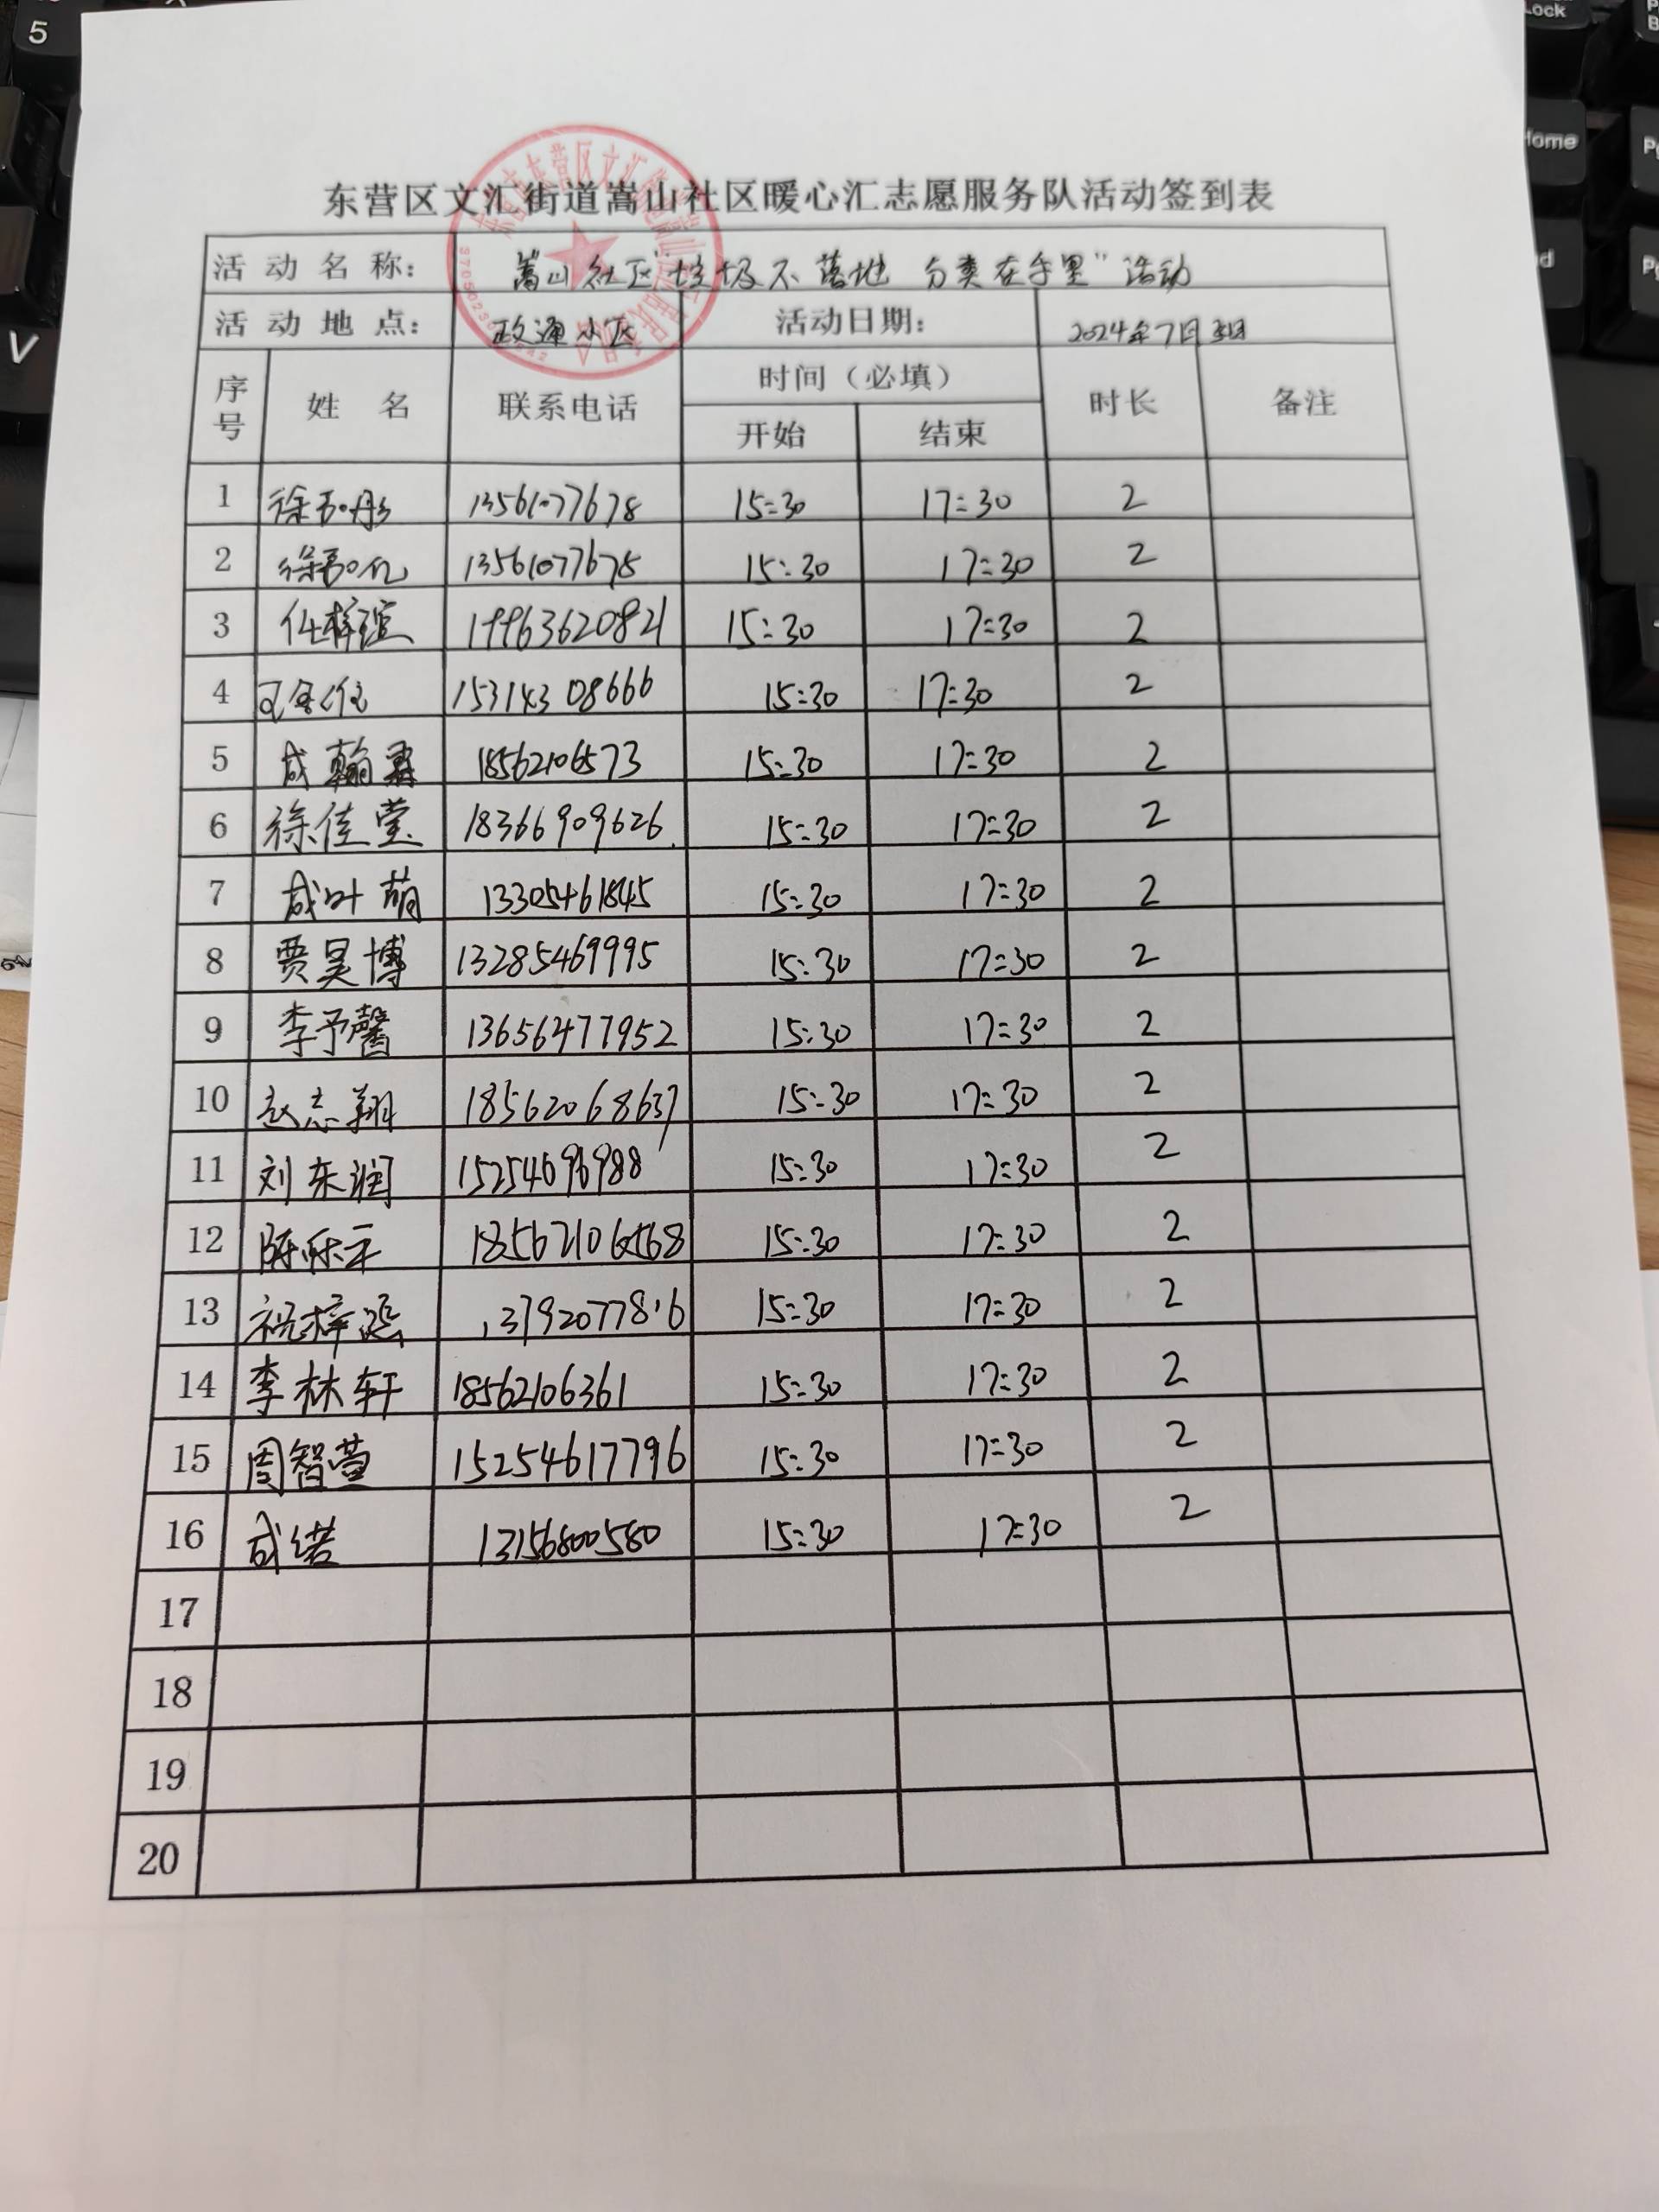 东营区文汇街道嵩山社区暖心汇志愿服务队活动签到表
活动名称： 嵩山社区“垃圾不落地 分类在手里”活动
活动地点： 政通小区 活动日期： 2024年7月
序号 姓名 联系电话 时间（必填） 时长 备注
开始 结束
1 13561077678 15:30 17:30 2
2 13561077678 15:30 17:30 2
3 19963620821 15:30 17:30 2
4 15314308666 15:30 17:30 2
5 18562106573 15:30 17:30 2
6 徐佳莹 18366909626 15:30 17:30 2
7 成叶萌 13305461845 15:30 17:30 2
8 贾昊博 13285469995 15:30 17:30 2
9 李予馨 13656477952 15:30 17:30 2
10 赵志翔 18562068637 15:30 17:30 2
11 刘东润 15254696988 15:30 17:30 2
12 15:30 17:30 2
13 13792077816 15:30 17:30 2
14 李林轩 18562106361 15:30 17:30 2
15 周智萱 15254617796 15:30 17:30 2
16 成诺 13156800580 15:30 17:30 2
17
18
19
20